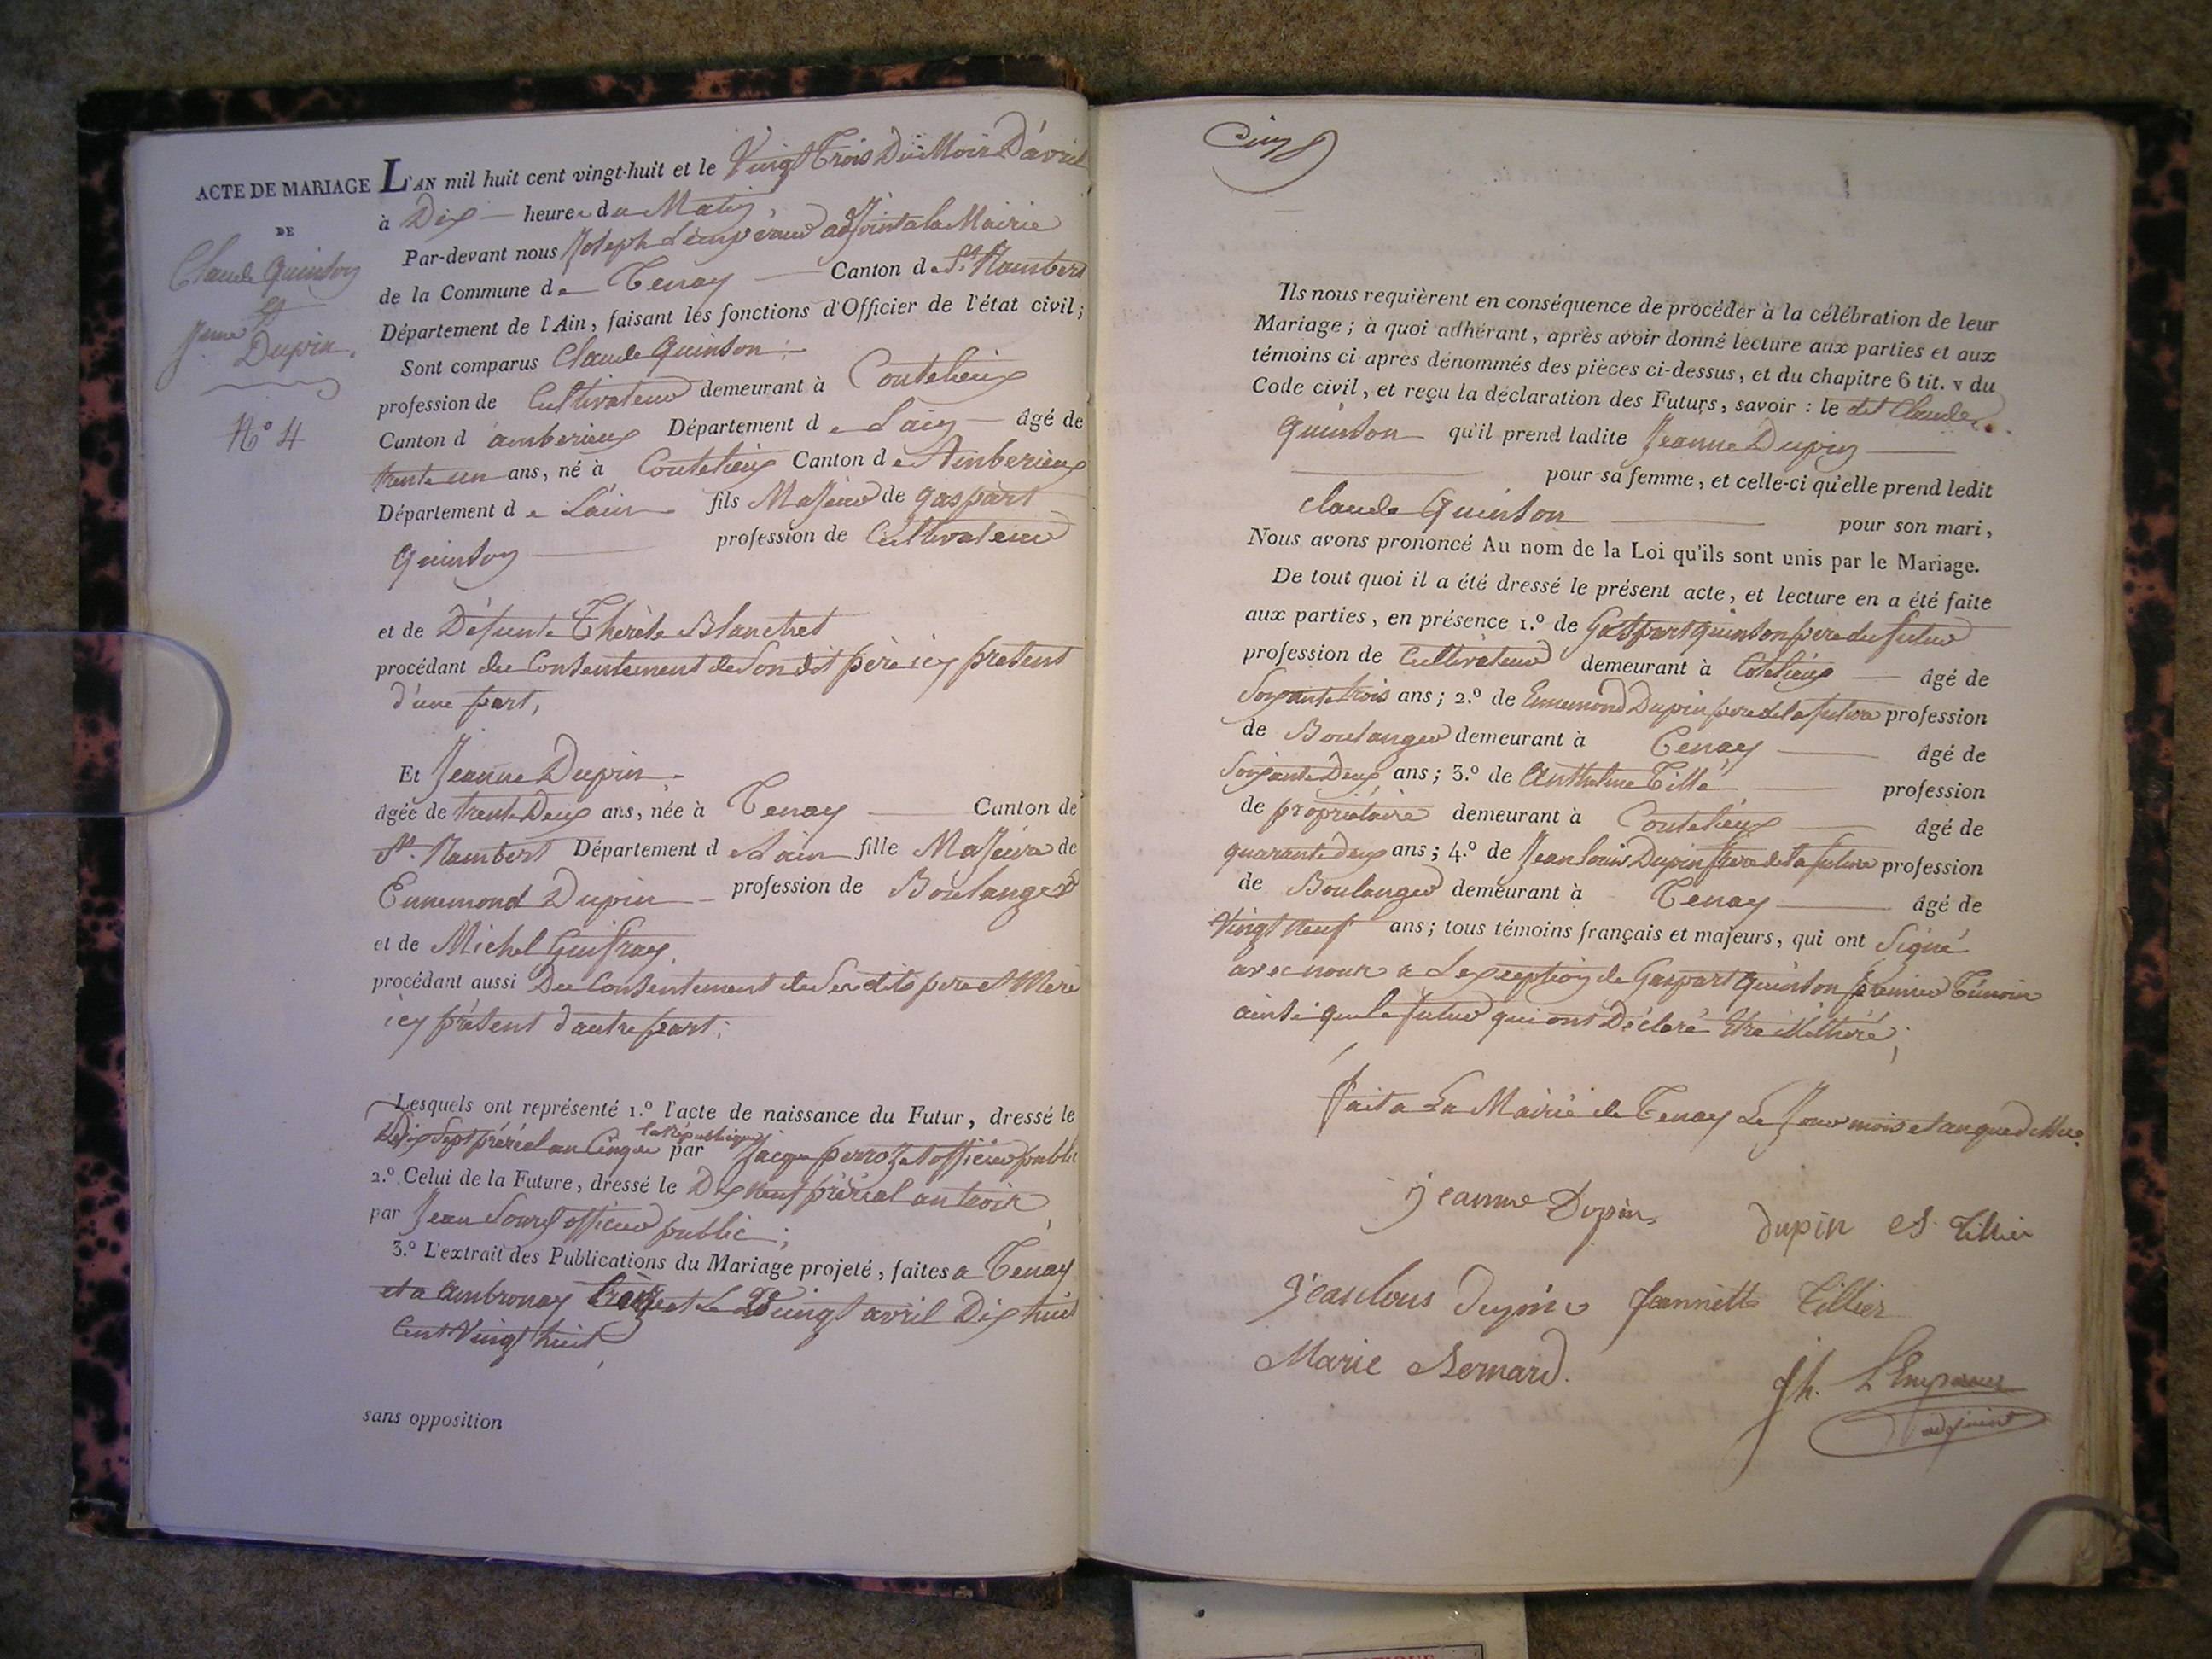 ACTE DE MARIAGE
DE
Claude Quinson
et
Jeanne
Dupin.
N° 4
L'AN mil huit cent vingt-huit et le Vingt Trois Du Mois D'avril
à Dix heures du Matin,
Par-devant nous Joseph Lempereur adjoint a la Mairie
de la Commune de Tenay Canton de St. Rambert
Département de l'Ain, faisant les fonctions d'Officier de l'état civil;
Sont comparus Claude Quinson
profession de Cultivateur demeurant à Coutelieux
Canton d'amberieux Département de Lain âgé de
trente un ans, né à Coutelieux Canton de Amberieux
Département de Lain fils Majeur de gaspart
Quinson profession de Cultivateur
et de Défunte Thérèse Blanchet
procédant du Consentement de Son dit père icy présent
d'une part,
Et Jeanne Dupin
âgée de trente Deux ans, née à Tenay Canton de
St. Rambert Département de Lain fille Majeure de
Ennemond Dupin profession de Boulanger
et de Michel Guifray.
procédant aussi Du Consentement de Ses dits pere et Mere
icy présent d'autre part;
Lesquels ont représenté 1.° l'acte de naissance du Futur, dressé le
Dix Sept prérial an Cinq de la République par Jacque perrozet officier public
2.° Celui de la Future, dressé le Dix neuf prérial an trois
par Jean officier public;
3.° L'extrait des Publications du Mariage projeté, faites a Tenay
et a Ambronay et Le Vingt avril Dix huit
Cent Vingt huit,
sans opposition
Cinq
Ils nous requièrent en conséquence de procéder à la célébration de leur
Mariage; à quoi adhérant, après avoir donné lecture aux parties et aux
témoins ci après dénommés des pièces ci-dessus, et du chapitre 6 tit. v du
Code civil, et reçu la déclaration des Futurs, savoir: le dit Claude
Quinson qu'il prend ladite Jeanne Dupin
pour sa femme, et celle-ci qu'elle prend ledit
Claude Quinson pour son mari,
Nous avons prononcé Au nom de la Loi qu'ils sont unis par le Mariage.
De tout quoi il a été dressé le présent acte, et lecture en a été faite
aux parties, en présence 1.° de Gaspart Quinson pere du futur
profession de Cultivateur demeurant à Cotelieux âgé de
Soixante trois ans; 2.° de Ennemond Dupin pere de la future profession
de Boulanger demeurant à Tenay âgé de
Soixante Deux ans; 3.° de Anthelme Tillié profession
de propriétaire demeurant à Coutelieux âgé de
quarante deux ans; 4.° de Jean Louis Dupin frere de la future profession
de Boulanger demeurant à Tenay âgé de
Vingt neuf ans; tous témoins français et majeurs, qui ont Signé
avec nous a Lexception de Gaspart Quinson premier Témoin
ainsi que le futur qui ont Déclaré Etre illithéré;
fait a La Mairie de Tenay Le Jour mois et an que dessus.
jeanne Dupin
dupin
Tillier
jean lous Dupin
Jeannette Tillier
Marie Bernard.
Jh. LEmpereur
adjoint